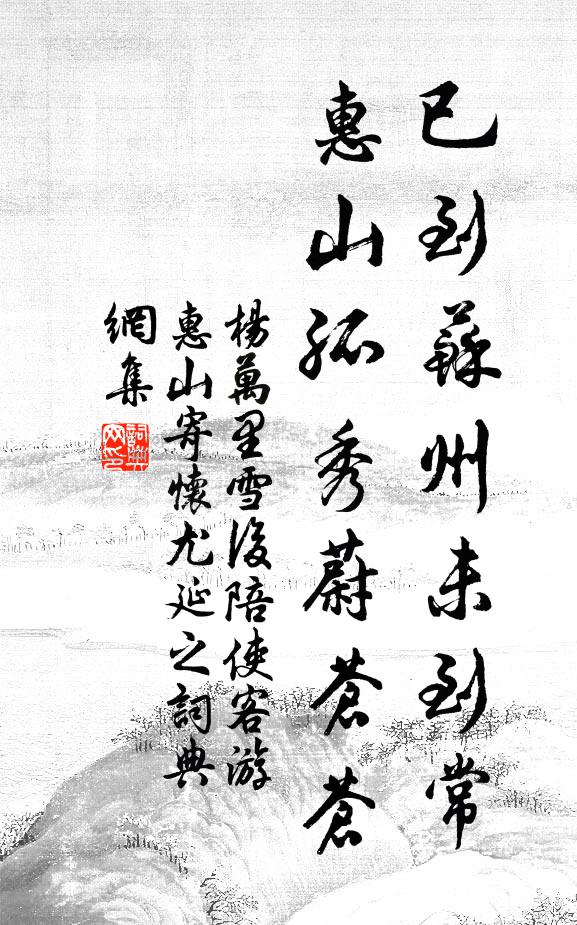 已到蘇州未到常
惠山孤秀蔚蒼蒼
楊萬里雪後陪使客游
惠山寄懷尤延之詞典
網集